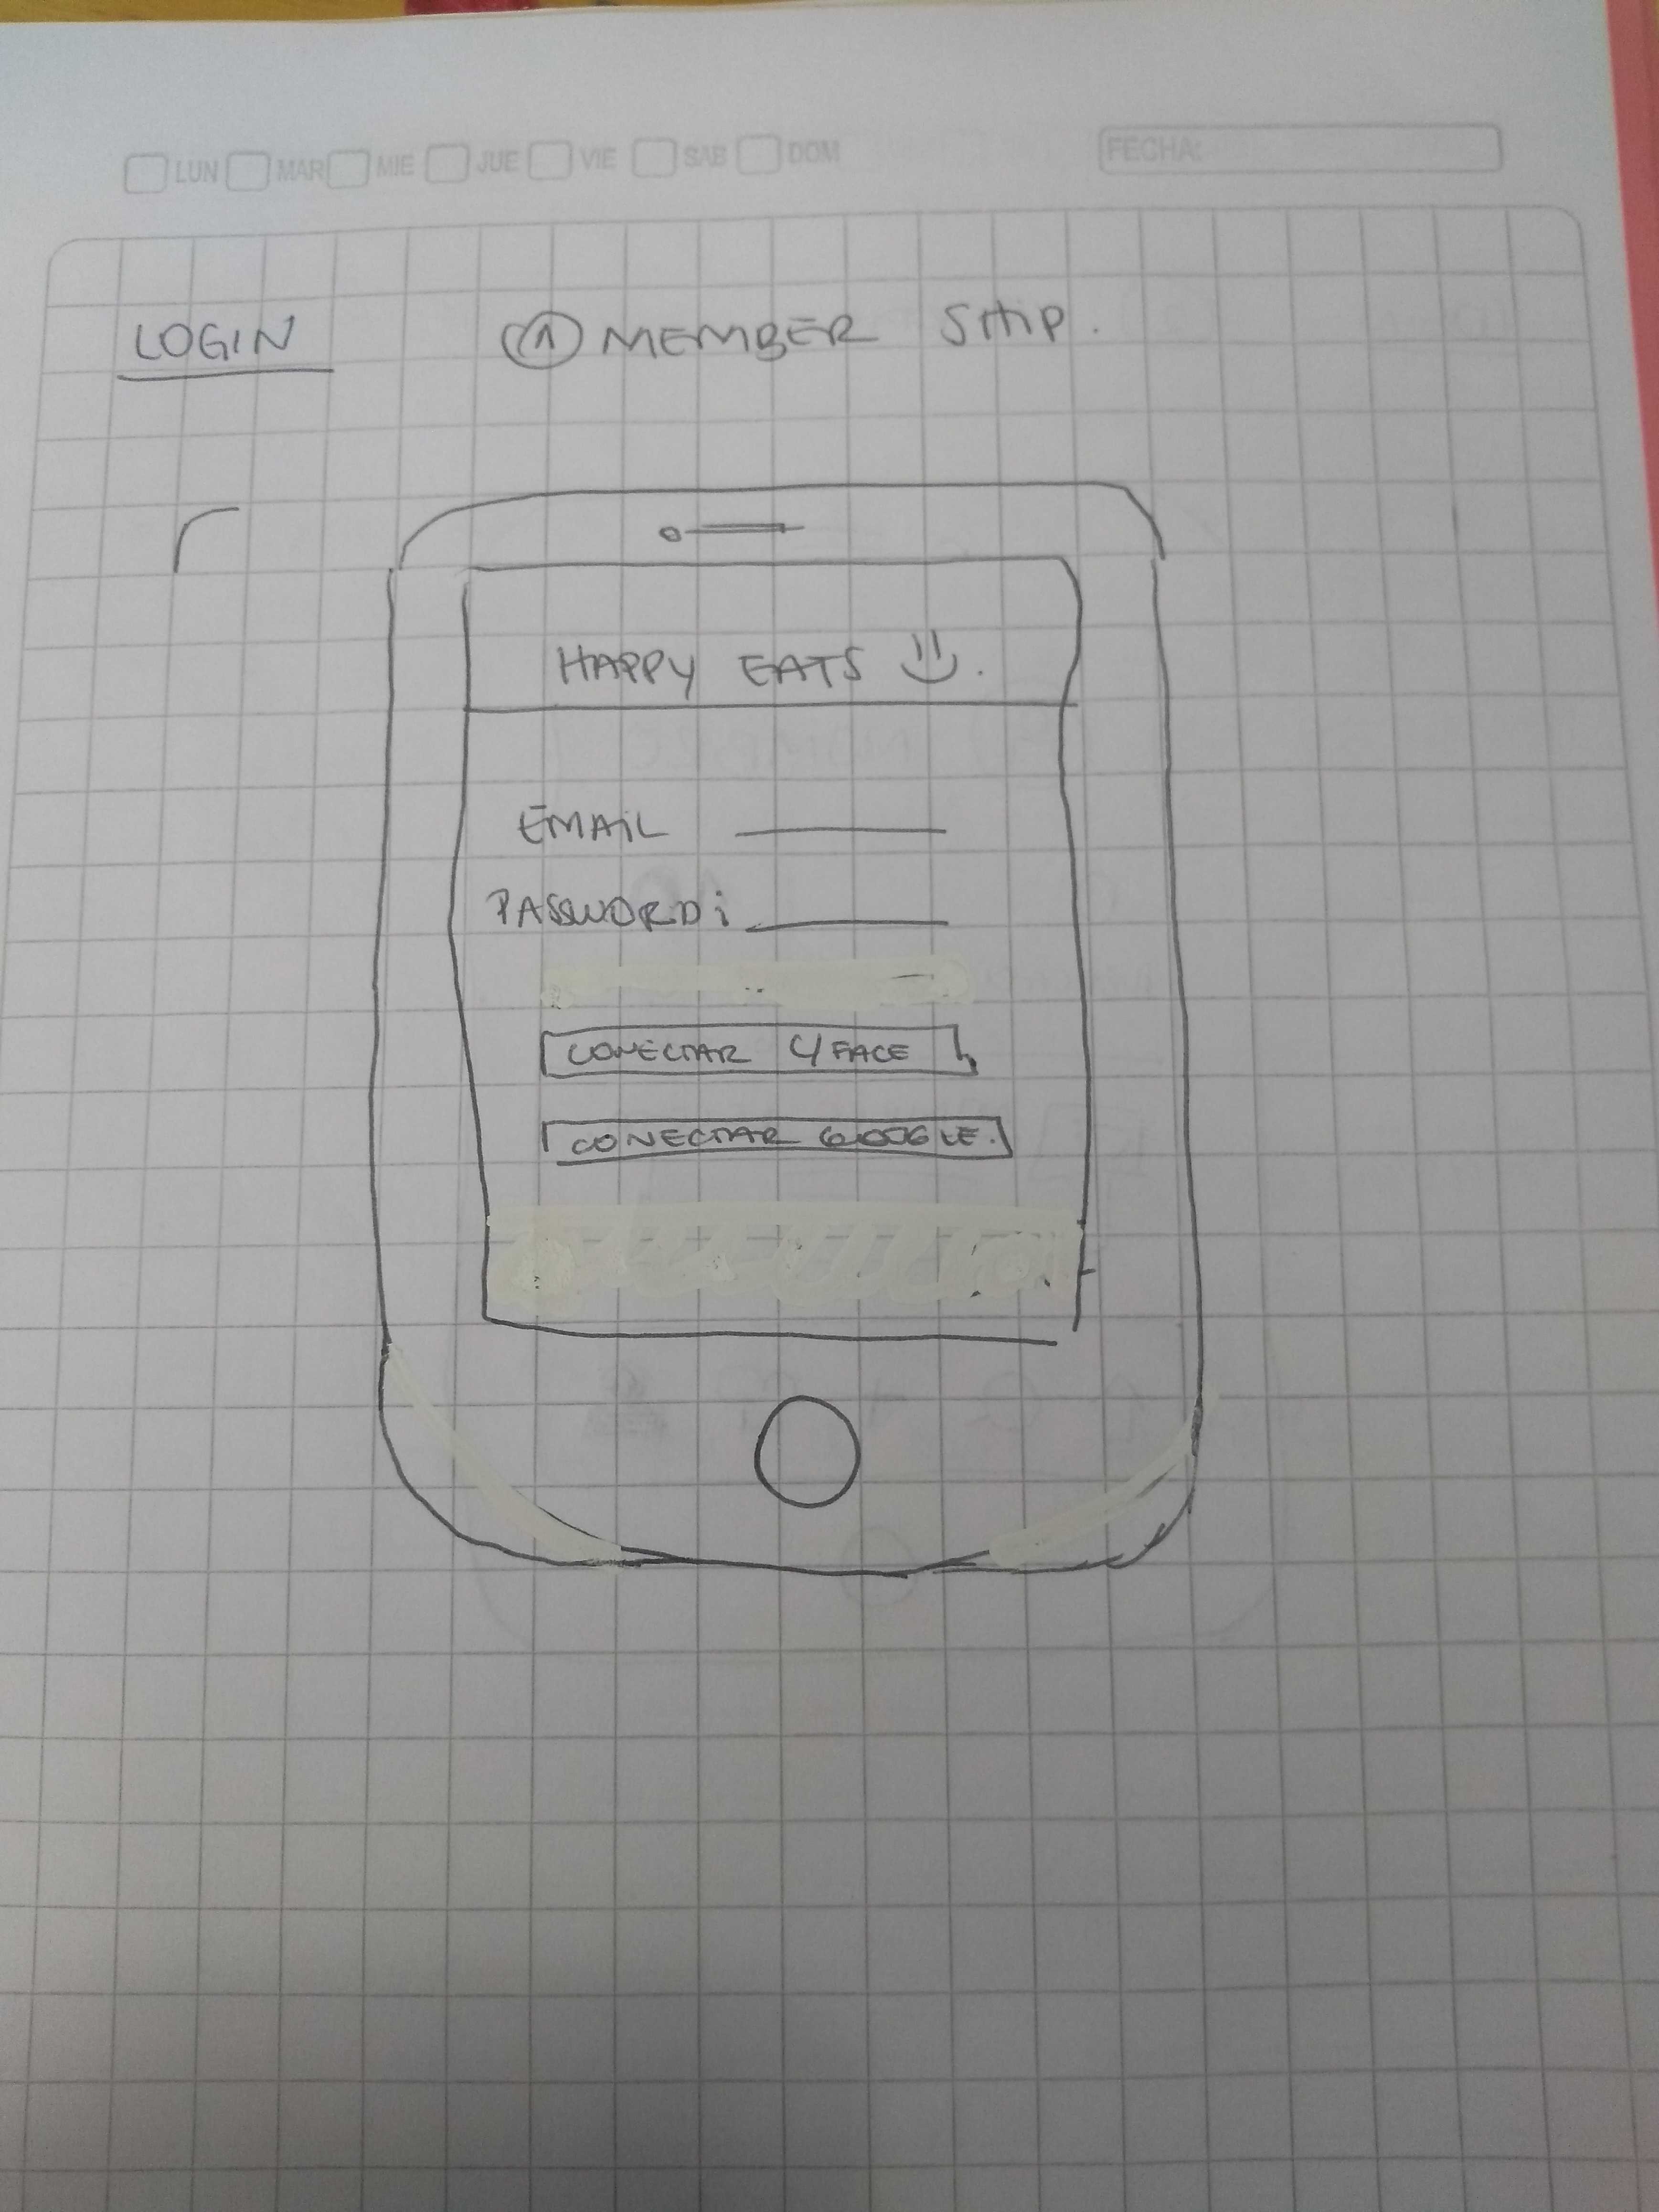 LUN MAR MIE JUE VIE SAB DOM FECHA:
LOGIN ① MEMBER SHIP.
HAPPY EATS
EMAIL
PASSWORD:
CONECTAR C/FACE
CONECTAR GOOGLE.